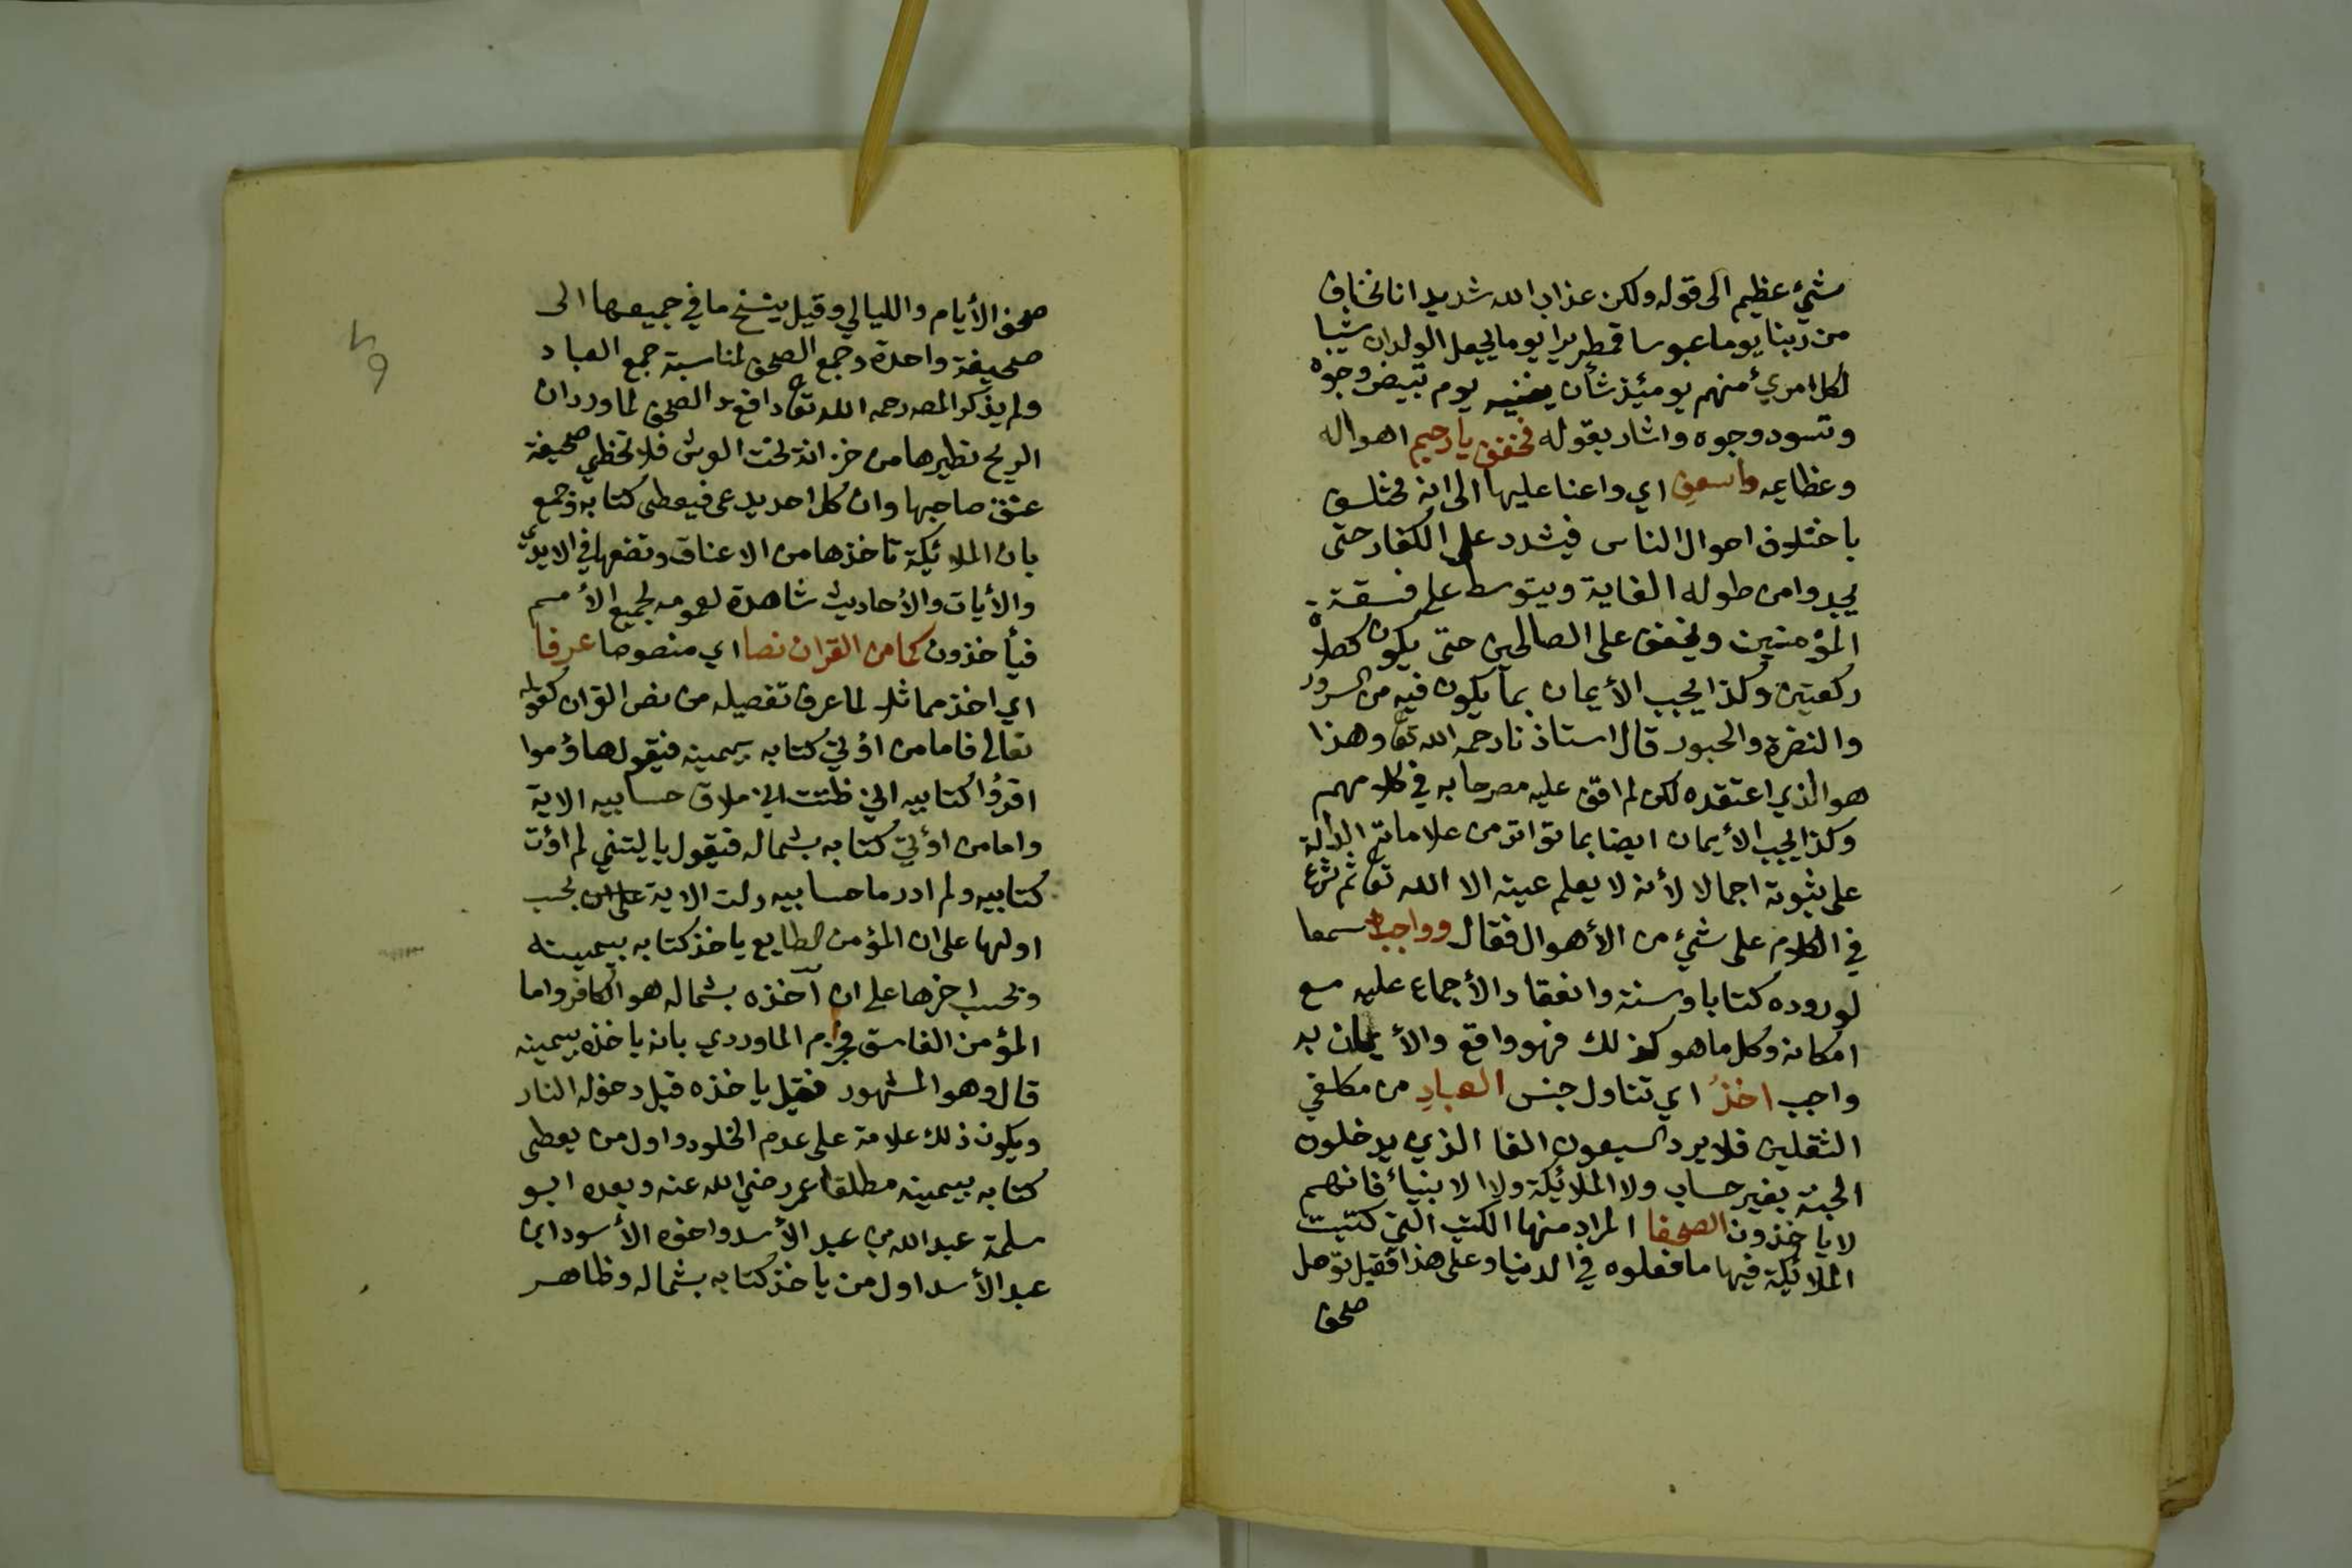 شيء عظيم الى قوله ولكن عذاب الله شديد انا نخاف
من ربنا يوما عبوسا قمطريرا يوما يجعل الولدان شيبا
لكل امرئ منهم يومئذ شأن يغنيه يوم تبيض وجوه
وتسود وجوه واشار بقوله فخفف يا رحيم اهواله
وعظايمه واسعف اي واعنا عليها الى انه مختلف
باختلاف احوال الناس فيشدد على الكفار حتى
يجدوا من طوله الغاية ويتوسط على فسقة
المؤمنين ويخفف على الصالحين حتى يكون كصلاة
ركعتين وكذا يجب الأيمان بما يكون فيه من السرور
والنضرة والحبور قال استاذنا رحمه الله تعا وهذا
هو الذي اعتقده لكن لم اقف عليه مصرحا به في كلامهم
وكذا يجب الأيمان ايضا بما تواتر من علاماته الدالة
على ثبوته اجمالا لأنه لا يعلم عينه الا الله تعا ثم شرع
في الكلام على شيء من الأهوال فقال وواجب سمعا
لوروده كتابا وسنة وانعقاد الأجماع عليه مع
امكانه وكل ما هو كذلك فهو واقع والأيمان به
واجب اخذُ اي تناول جنس العبادِ من مكلفي
الثقلين فلا يرد السبعون الفا الذي يدخلون
الجنة بغير حساب ولا الملائكة ولا الانبياء فانهم
لا ياخذون الصحفا المراد منها الكتب التي كتبت
الملائكة فيها ما فعلوه في الدنيا وعلى هذا فقيل توصل
صحف
صحف الأيام والليالي وقيل ينسخ ما في جميعها الى
صحيفة واحدة وجمع الصحف لمناسبة جمع العباد
ولم يذكر المص رحمه الله تعا دافع الصحف لما ورد ان
الريح تطيرها من خزانة تحت العرش فلا تخطي صحيفة
عنق صاحبها وان كل احد يدعى فيعطى كتابه وجمع
بان الملائكة تاخذها من الاعناق وتضعها في الايدي
والأيات والأحاديث شاهدة لعمومه لجميع الأمم
فيأخذون كما من القران نصا اي منصوصا عرفا
اي اخذ مماثل لما عرف تفصيله من نص القران كقوله
تعالى فاما من اوتي كتابه بيمينه فيقول هاؤموا
اقرؤا كتابيه اني ظننت اني ملاق حسابيه الاية
واما من اوتي كتابه بشماله فيقول يا ليتني لم اوت
كتابيه ولم ادر ما حسابيه دلت الاية على ان بحسب
اولها على ان المؤمن الطايع ياخذ كتابه بيمينه
وبحسب اخرها على ان آخذه بشماله هو الكافر واما
المؤمن الفاسق فجزم الماوردي بانه ياخذه بيمينه
قال وهو المشهور فقيل ياخذه قبل دخوله النار
ويكون ذلك علامة على عدم الخلود واول من يعطى
كتابه بيمينه مطلقا عمر رضي الله عنه وبعده ابو
سلمة عبد الله بن عبد الأسد واخوه الأسود ابن
عبد الأسد اول من ياخذ كتابه بشماله وظاهر